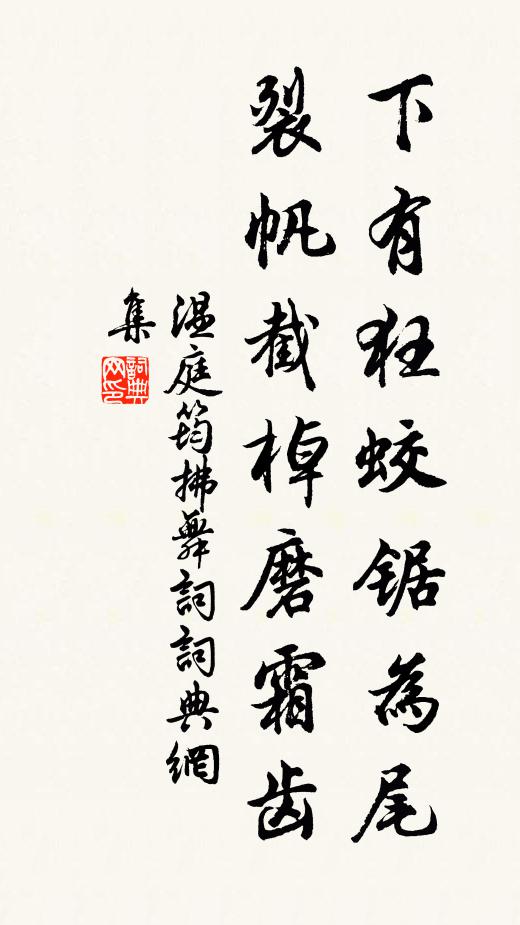 下有狂蛟锯為尾
裂帆截棹磨霜齿
温庭筠拂舞詞詞典網
集
詞典网印